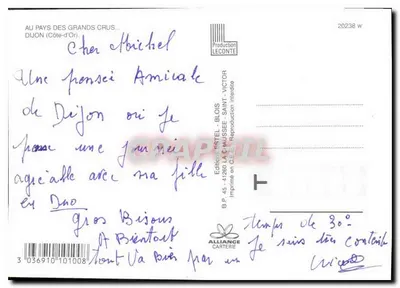 AU PAYS DES GRANDS CRUS...
DIJON (Côte-d'Or)
20238 w
Production
LECONTE
Cher Michel
Une pensée Amicale
de Dijon où je
passe une journée
agréable avec sa fille
en Duo
Gros Bisous
A Bientôt
tout Va Bien par un
temps de 30°
Je suis très contente
Nicole
Edition ARTEL - BLOIS
B.P. 45 - 41260 LA CHAUSSEE - SAINT - VICTOR
Imprimé en C.E.E. Reproduction interdite
ALLIANCE
CARTERIE
3 036910 101008
CPAPHIL